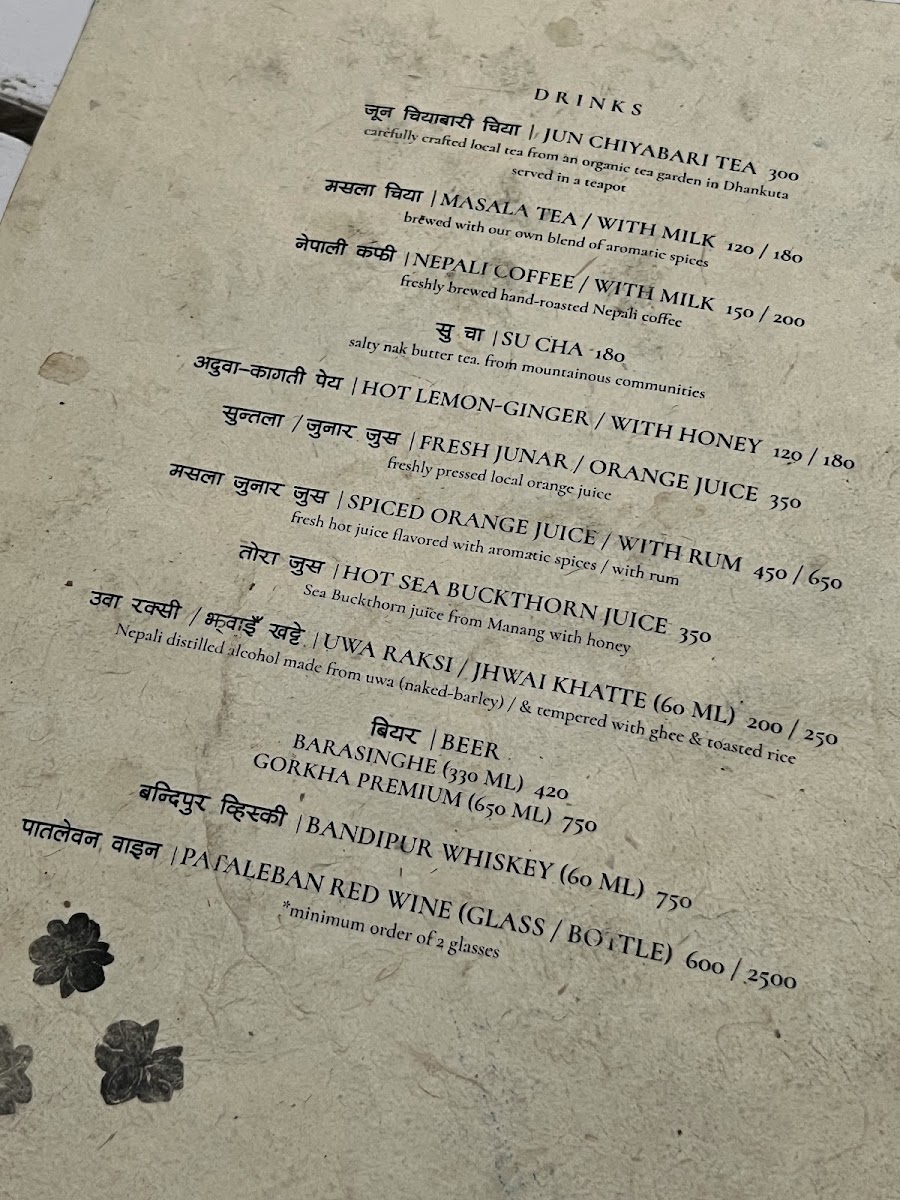 DRINKS
जून चियाबारी चिया | JUN CHIYABARI TEA 300
carefully crafted local tea from an organic tea garden in Dhankuta
served in a teapot
मसला चिया | MASALA TEA / WITH MILK 120 / 180
brewed with our own blend of aromatic spices
नेपाली कफी | NEPALI COFFEE / WITH MILK 150 / 200
freshly brewed hand-roasted Nepali coffee
सु चा | SU CHA 180
salty nak butter tea. from mountainous communities
अदुवा-कागती पेय | HOT LEMON-GINGER / WITH HONEY 120 / 180
सुन्तला / जुनार जुस | FRESH JUNAR / ORANGE JUICE 350
freshly pressed local orange juice
मसला जुनार जुस | SPICED ORANGE JUICE / WITH RUM 450 / 650
fresh hot juice flavored with aromatic spices / with rum
तोरा जुस | HOT SEA BUCKTHORN JUICE 350
Sea Buckthorn juice from Manang with honey
उवा रक्सी / झ्वाइँ खट्टे | UWA RAKSI / JHWAI KHATTE (60 ML) 200 / 250
Nepali distilled alcohol made from uwa (naked-barley) / & tempered with ghee & toasted rice
बियर | BEER
BARASINGHE (330 ML) 420
GORKHA PREMIUM (650 ML) 750
बन्दिपुर व्हिस्की | BANDIPUR WHISKEY (60 ML) 750
पातलेवन वाइन | PATALEBAN RED WINE (GLASS / BOTTLE) 600 / 2500
*minimum order of 2 glasses